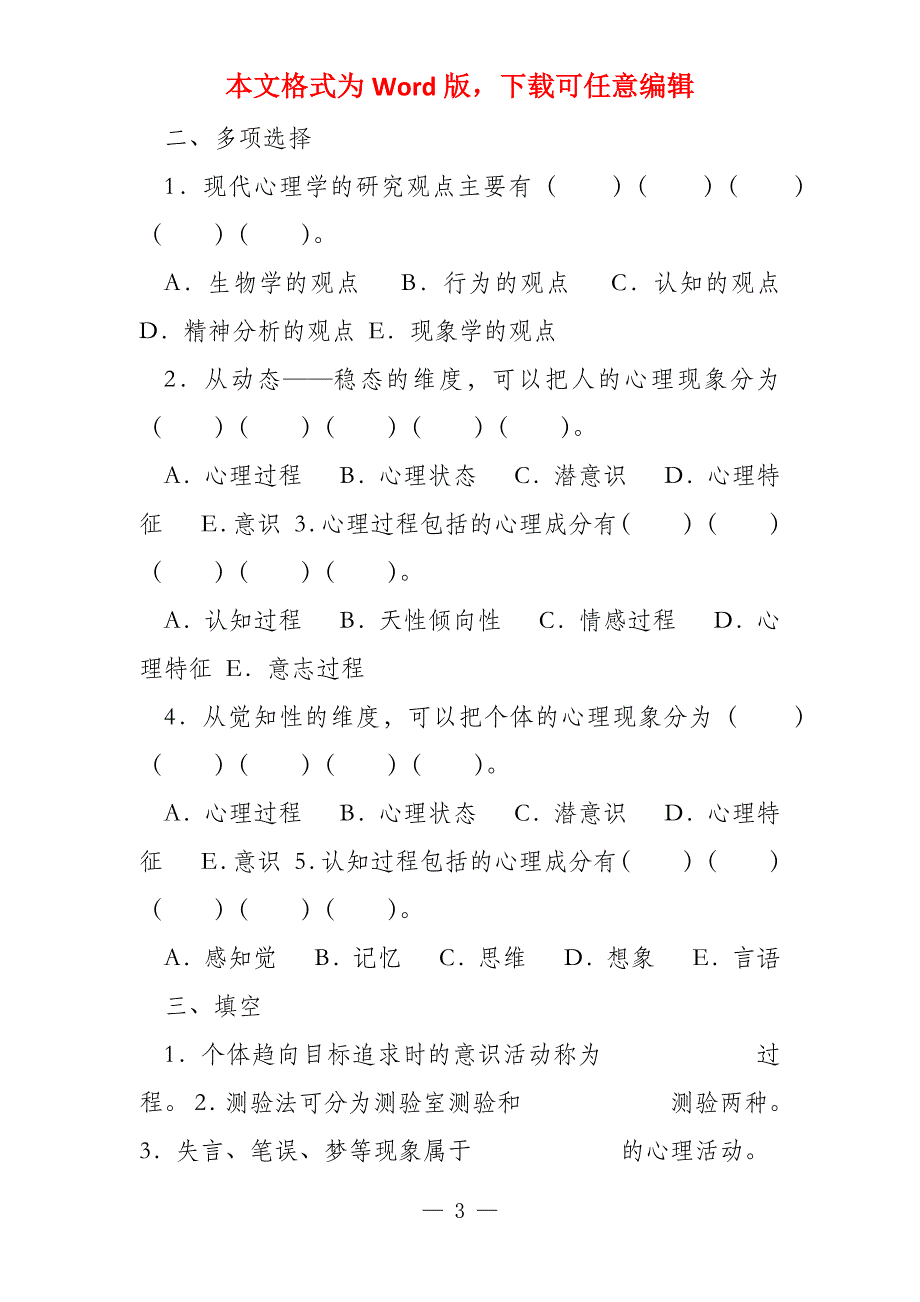 本文格式为 Word 版，下载可任意编辑
二、多项选择
1．现代心理学的研究观点主要有（　　）（　　）（　　）
（　　）（　　）。
A．生物学的观点　B．行为的观点　C．认知的观点
D．精神分析的观点 E．现象学的观点
2．从动态——稳态的维度，可以把人的心理现象分为
（　　）（　　）（　　）（　　）（　　）。
A．心理过程　B．心理状态　C．潜意识　D．心理特
征　E．意识 3．心理过程包括的心理成分有（　　）（　　）
（　　）（　　）（　　）。
A．认知过程　B．天性倾向性　C．情感过程　D．心
理特征 E．意志过程
4．从觉知性的维度，可以把个体的心理现象分为（　　）
（　　）（　　）（　　）（　　）。
A．心理过程　B．心理状态　C．潜意识　D．心理特
征　E．意识 5．认知过程包括的心理成分有（　　）（　　）
（　　）（　　）（　　）。
A．感知觉　B．记忆　C．思维　D．想象　E．言语
三、填空
1．个体趋向目标追求时的意识活动称为　　　　　　过
程。 2．测验法可分为测验室测验和　　　　　　测验两种。
3．失言、笔误、梦等现象属于　　　　　　的心理活动。
— 3 —